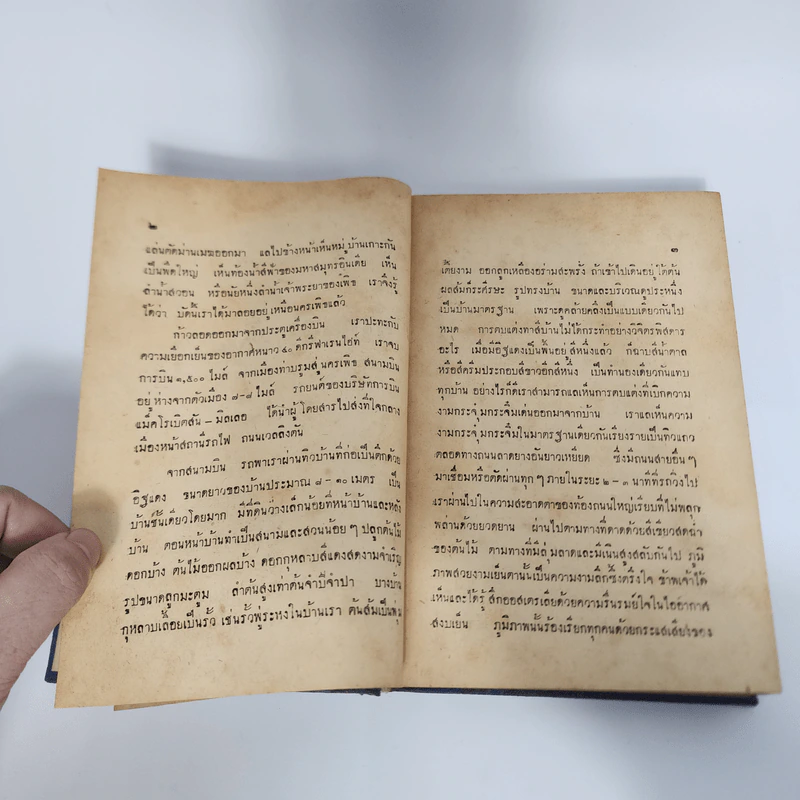 ๒
แล่นตัดม่านเมฆออกมา แลไปข้างหน้าเห็นหมู่บ้านเกาะกัน
เป็นพืดใหญ่ เห็นท้องน้ำสีฟ้าของมหาสมุทรอินเดีย เห็น
ลำน้ำสวอน หรือนัยหนึ่งลำน้ำเจ้าพระยาของเพิช เราจึงรู้
ได้ว่า บัดนี้เราได้มาลอยอยู่เหนือนครเพิชแล้ว
ก้าวลอดออกมาจากประตูเครื่องบิน เราปะทะกับ
ความเยือกเย็นของอากาศหนาว ๔๐ ดีกรีฟาเรนไฮท์ เราจบ
การบิน ๑,๕๐๐ ไมล์ จากเมืองท่าบรูมสู่นครเพิช สนามบิน
อยู่ห่างจากตัวเมือง ๗-๘ ไมล์ รถยนต์ของบริษัทการบิน
แม็คโรเบิตสัน – มิลเลอ ได้นำผู้โดยสารไปส่งที่ใจกลาง
เมืองหน้าสถานีรถไฟ ถนนเวลลิงตัน
จากสนามบิน รถพาเราผ่านทิวบ้านที่ก่อเป็นตึกด้วย
อิฐแดง ขนาดยาวของบ้านประมาณ ๘ – ๑๐ เมตร เป็น
บ้านชั้นเดียวโดยมาก มีที่ดินว่างเล็กน้อยที่หน้าบ้านและหลัง
บ้าน ตอนหน้าบ้านทำเป็นสนามและสวนน้อย ๆ ปลูกต้นไม้
ดอกบ้าง ต้นไม้ออกผลบ้าง ดอกกุหลาบสีแดงสดงามจำเริญ
รูปขนาดลูกมะตูม ลำต้นสูงเท่าต้นจำปีจำปา บางบ้าน
กุหลาบเลื้อยเป็นรั้ว เช่นรั้วพู่ระหงในบ้านเรา ต้นส้มเป็นพุ่ม
๓
เตี้ยงาม ออกลูกเหลืองอร่ามสะพรั่ง ถ้าเข้าไปเดินอยู่ใต้ต้น
ผลส้มก็ระศีรษะ รูปทรงบ้าน ขนาดและบริเวณดูประหนึ่ง
เป็นบ้านมาตรฐาน เพราะดูคล้ายคลึงเป็นแบบเดียวกันไป
หมด การตบแต่งทาสีบ้านไม่ได้กระทำอย่างวิจิตรพิสดาร
อะไร เมื่อมีอิฐแดงเป็นพื้นอยู่สีหนึ่งแล้ว ก็ฉาบสีน้ำตาล
หรือสีครีมประกอบสีขาวอีกสีหนึ่ง เป็นทำนองเดียวกันแทบ
ทุกบ้าน อย่างไรก็ดีเราสามารถแลเห็นการตบแต่งที่เบิกความ
งามกระจุ๋มกระจิ๋มเด่นออกมาจากบ้าน เราแลเห็นความ
งามกระจุ๋มกระจิ๋มในมาตรฐานเดียวกันเรียงรายเป็นทิวแถว
ตลอดทางถนนลาดยางอันยาวเหยียด ซึ่งมีถนนสายอื่น ๆ
มาเชื่อมหรือตัดผ่านทุก ๆ ภายในระยะ ๒ – ๓ นาทีที่รถวิ่งไป
เราผ่านไปในความสะอาดตาของท้องถนนใหญ่เรียบที่ไม่พลุก
พล่านด้วยยวดยาน ผ่านไปตามทางที่ดาดด้วยสีเขียวสดฉ่ำ
ของต้นไม้ ตามทางที่มีลุ่มลาดและมีเนินสูงสลับกันไป ภูมิ
ภาพสวยงามเย็นตานั้นเป็นความงามลึกซึ้งตรึงใจ ข้าพเจ้าได้
เห็นและได้รู้สึกออสเตรเลียด้วยความรื่นรมย์ใจในไออากาศ
สงบเย็น ภูมิภาพนั้นร้องเรียกทุกคนด้วยกระแสเสียงของ